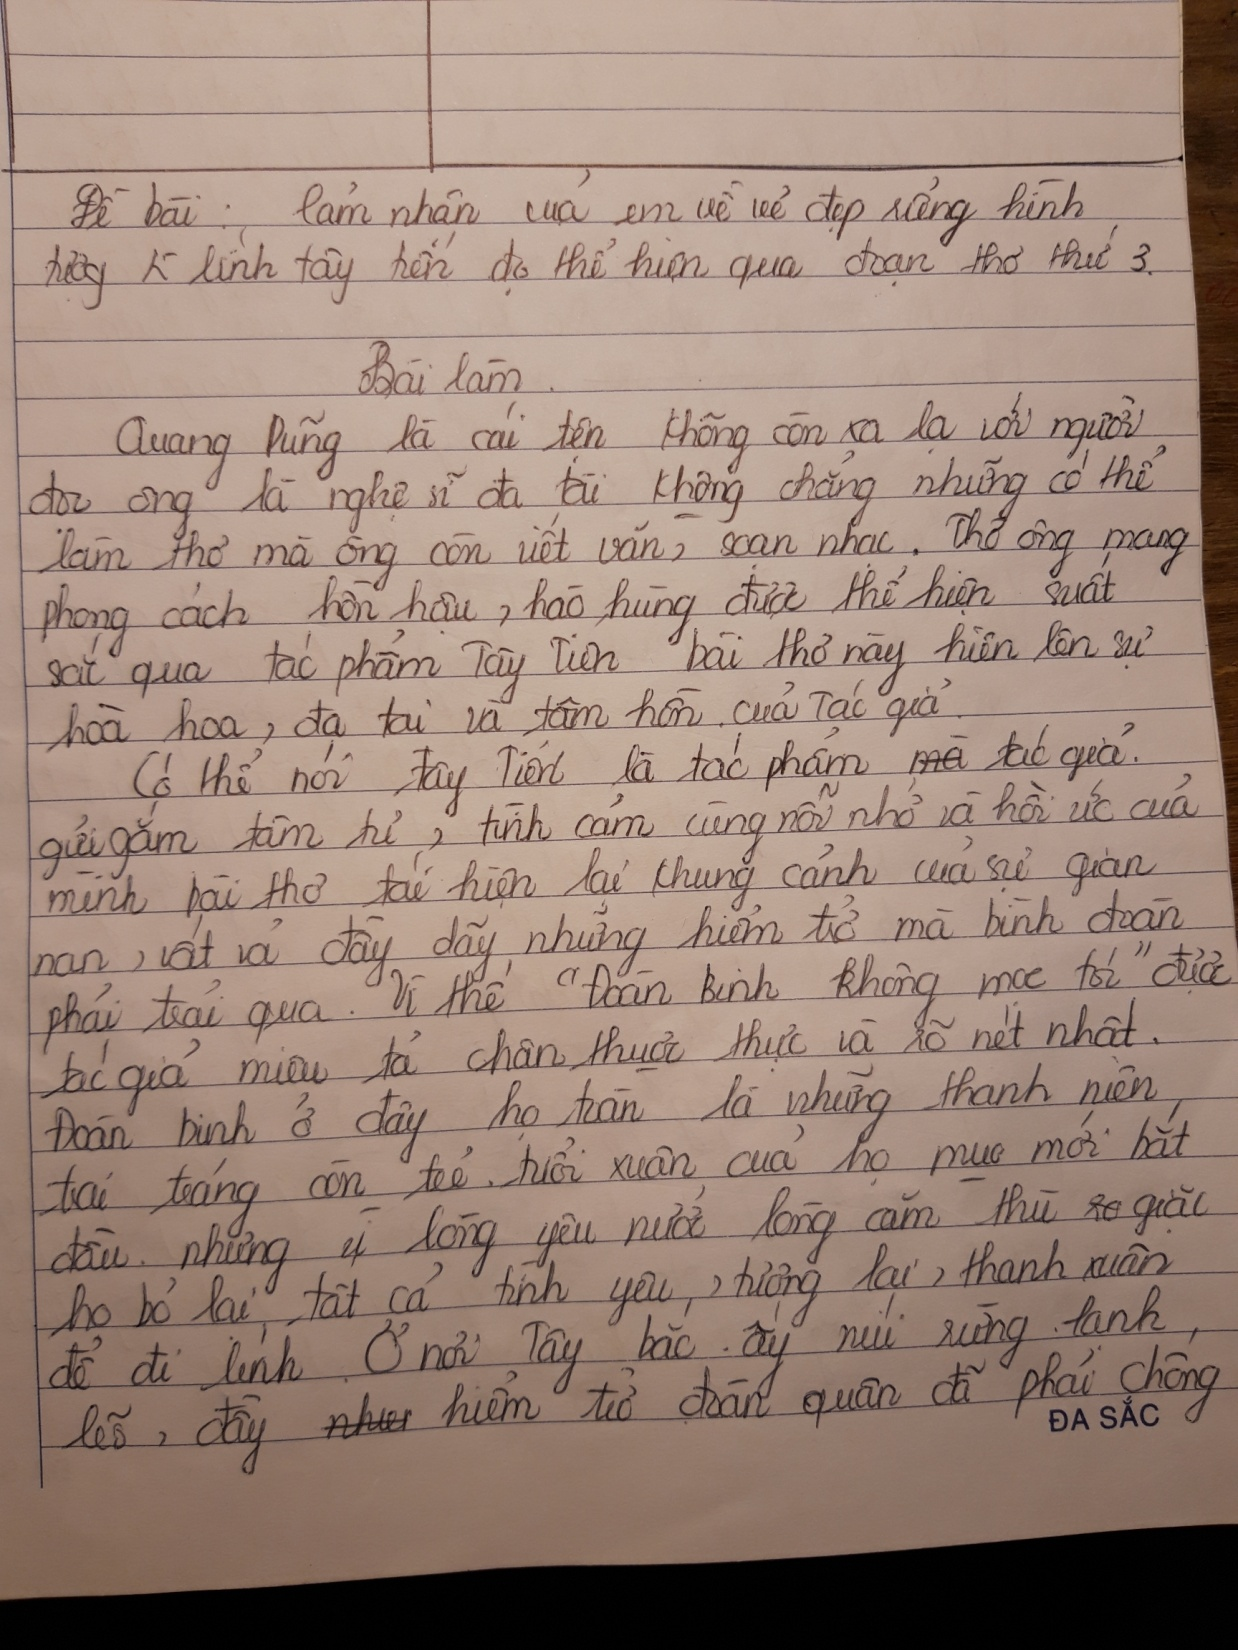 Đề bài: Cảm nhận của em về vẻ đẹp rằng hình
tượng lính tây tiến đc thể hiện qua đoạn thơ thứ 3.
Bài làm.
Quang Dũng là cái tên không còn xa lạ với người
đọc ông là nghệ sĩ đa tài không chẳng những có thể
làm thơ mà ông còn viết văn, soạn nhạc. Thơ ông mang
phong cách hồn hậu, hào hùng được thể hiện suất
sắc qua tác phẩm Tây Tiến bài thơ này hiện lên sự
hoà hoa, đa tài và tâm hồn của Tác giả.
Có thể nói Tây Tiến là tác phẩm mà tác giả.
gửi gắm tâm tư, tình cảm cùng nỗi nhớ và hồi ức của
mình bài thơ tái hiện lại khung cảnh của sự gian
nan, vất vả đầy dẫy những hiểm trở mà binh đoàn
phải trải qua. Vì thế "Đoàn binh không mọc tóc" được
tác giả miêu tả chân thược thực và rõ nét nhất.
Đoàn binh ở đây họ toàn là những thanh niên,
trai tráng còn trẻ. tuổi xuân của họ mục mới bắt
đầu. nhưng vì lòng yêu nước lòng căm thù giặc
họ bỏ lại tất cả tình yêu, tương lai, thanh xuân
để đi lính. Ở nơi Tây bắc ấy núi rừng lạnh,
lẽo, đầy như hiểm trở đoàn quân đã phải chống
ĐA SẮC